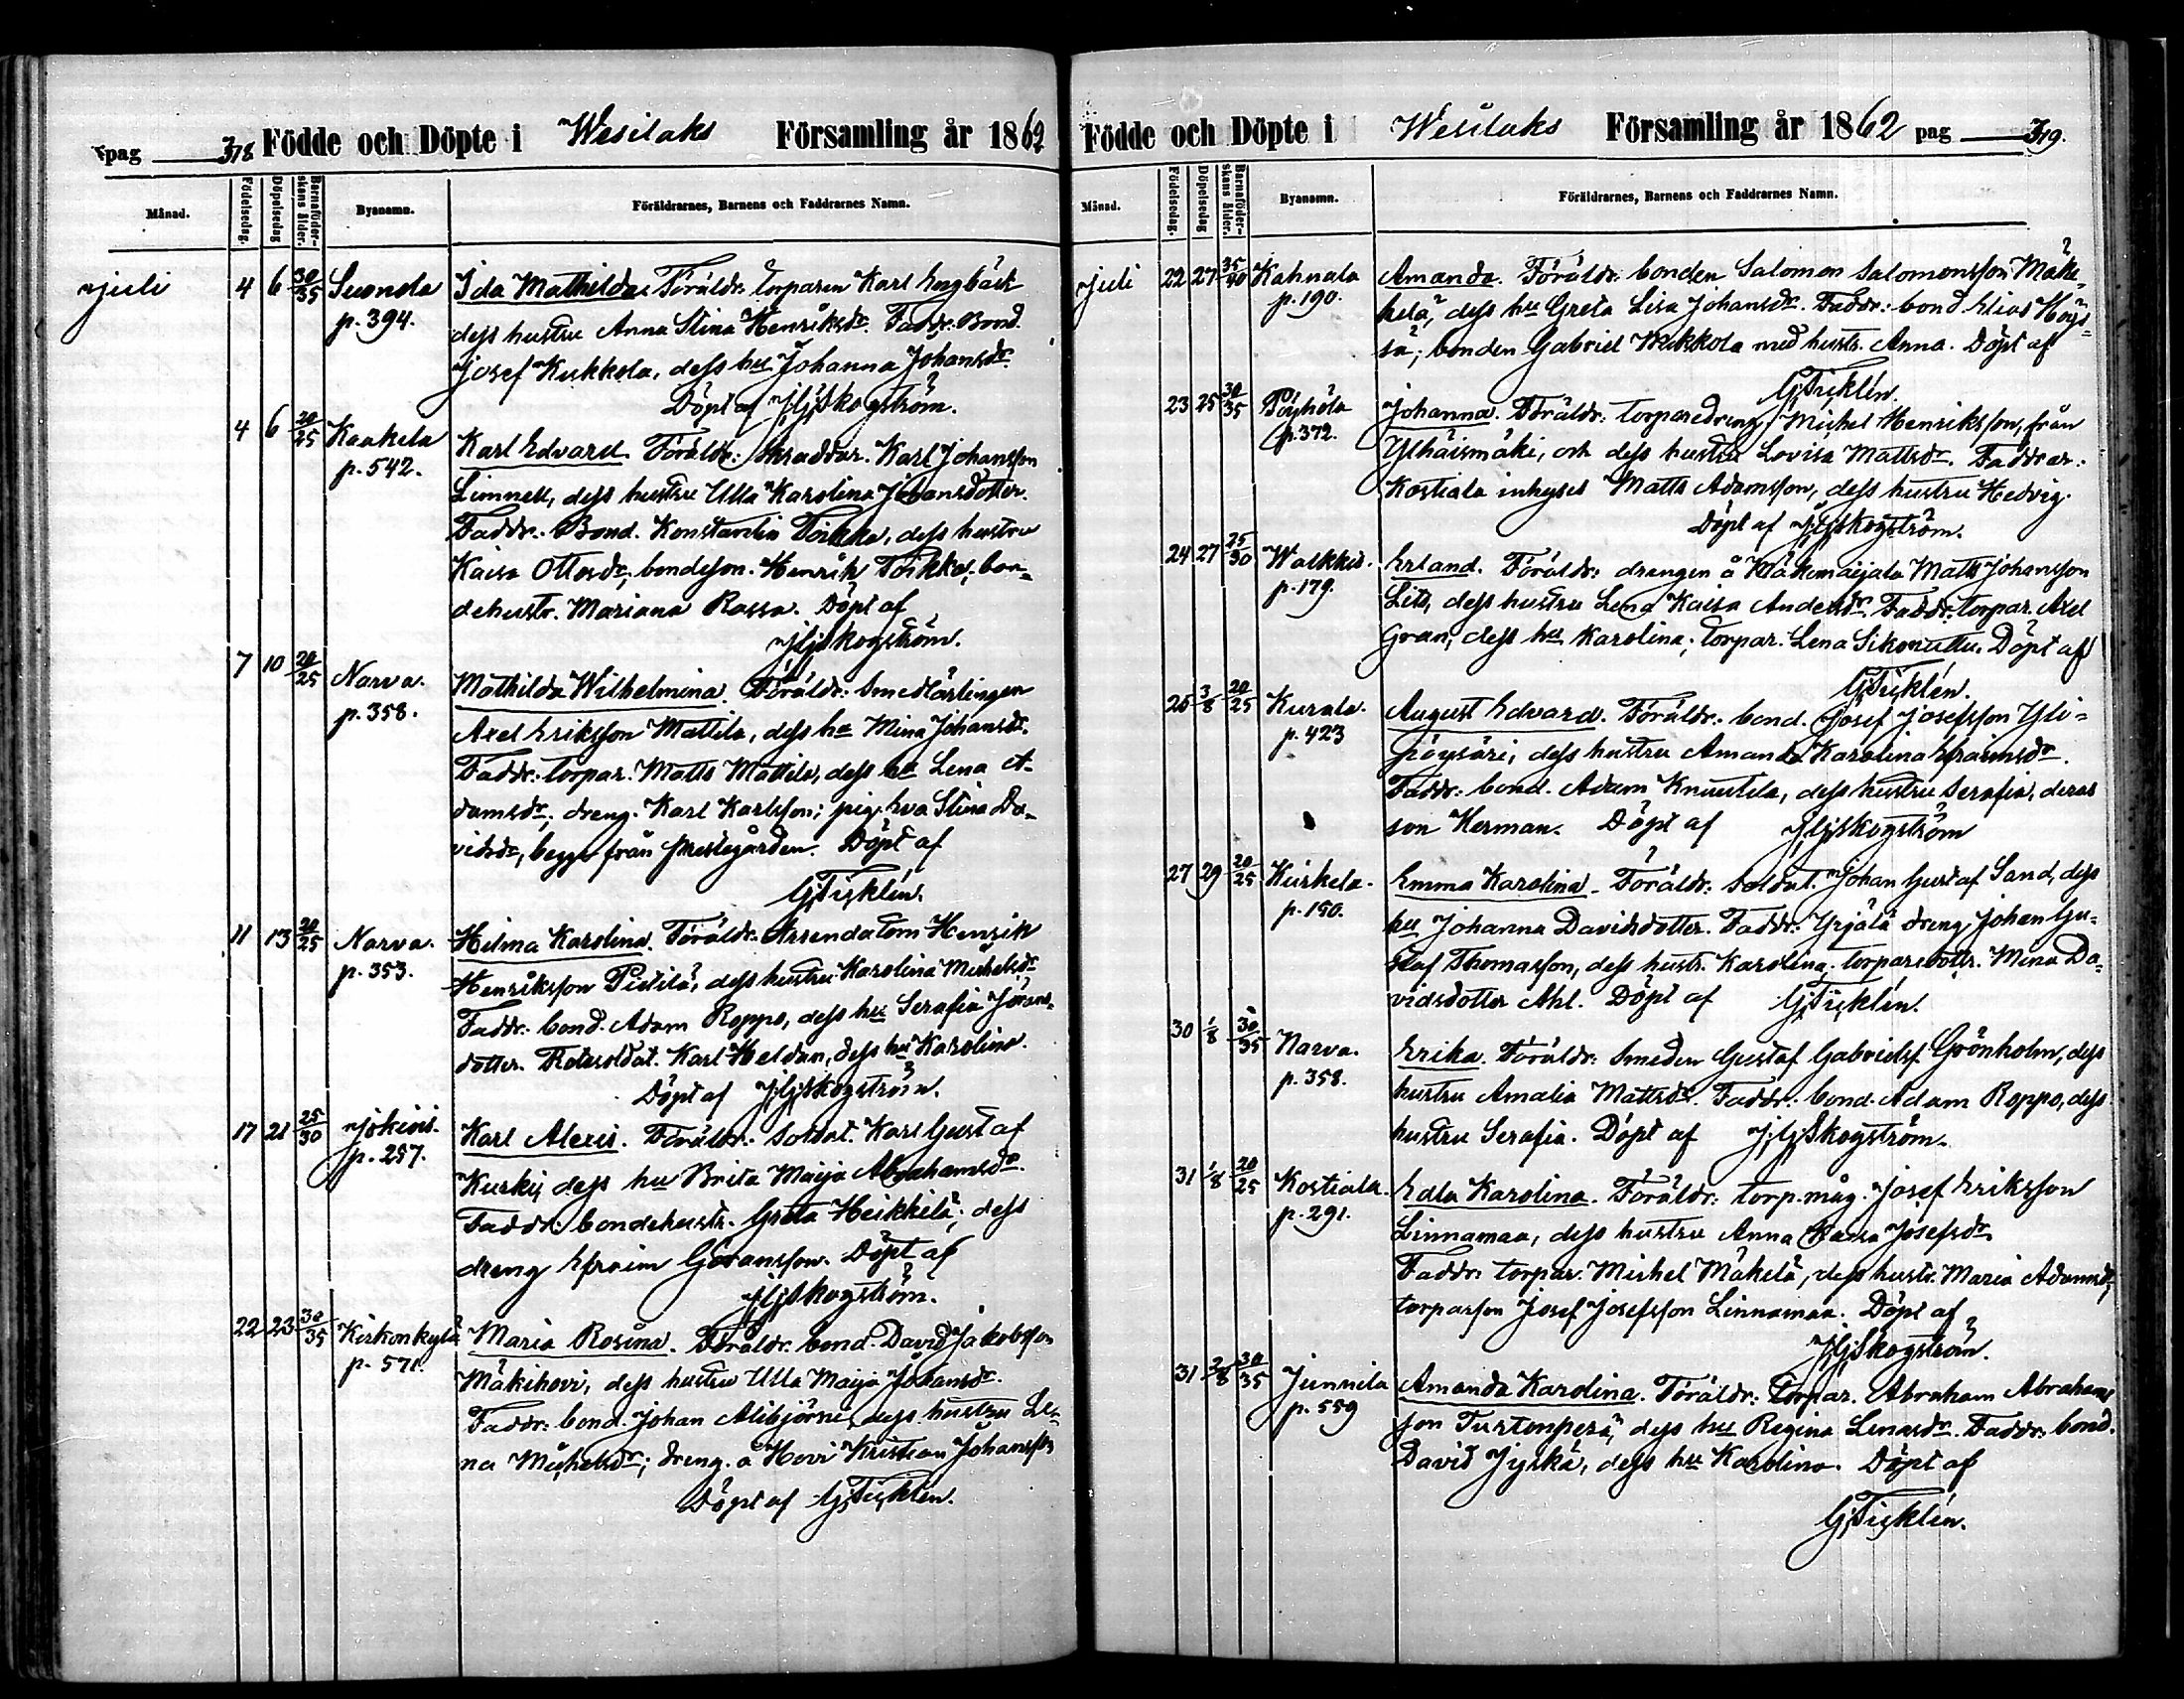 pag 318 Födde och Döpte i Wesilaks Församling år 1862
Månad. Födelsedag. Döpelsedag Barnaföder-skans ålder. Byanamn. Föräldrarnes, Barnens och Faddrarnes Namn.
Juli 4 6 30/35 Suonola Ida Mathilda. Föräldr: torparen Karl Engbäck
p. 394. dess hustru Anna Stina Henriksdr. Faddr. Bond.
Josef Kukkola, dess hu Johanna Johansdr.
Döpt af J.G.Skogström.
4 6 20/25 Kaakela Karl Edvard. Föräldr: Skräddar. Karl Johansson
p. 542. Limnell, dess hustru Ulla Karolina Johansdotter.
Faddr. Bond. Konstantin Toikka, dess hustru
Kaisa Ottosdr; bondeson. Henrik Toikka; bon-
dehustr. Mariana Rassa. Döpt af
J.G.Skogström.
7 10 20/25 Narva. Mathilda Wilhelmina. Föräldr: Smedlärlingen
p. 358. Axel Eriksson Mattila, dess hu Mina Johansdr.
Faddr: torpar. Matts Mattila, dess hu Lena A-
damsdr; dreng. Karl Karlsson; pig. Eva Stina Da-
vidsdr, begge från Prestegården. Döpt af
G.Ticklén.
11 13 20/25 Narva. Hilma Karolina. Föräldr: Arrendatorn Henrik
p. 353. Henriksson Pietilä, dess hustru Karolina Michelsdr
Faddr: bond. Adam Roppo, dess hu Serafia Jörans-
dotter. Rotesoldat. Karl Heldan, dess hu Karolina.
Döpt af J.G.Skogström.
17 21 25/30 Jokiois. Karl Alexis. Föräldr: Soldat. Karl Gustaf
p. 257. Kurki, dess hu Brita Maija Abrahamsdr.
Faddr: bondehustr. Greta Heikkilä; dess
dreng Efraim Göransson. Döpt af
J.G.Skogström.
22 23 30/35 Kirkonkylä Maria Rosina. Föräldr. bond. David Jakobsson
p. 571. Mäkihovi, dess hustru Ulla Maija Johansdr.
Faddr: bond. Johan Alibjörni, dess hustru Le-
na Michelsdr; dreng. å Hovi Kristian Johansson
Döpt af G.Ticklén.
Födde och Döpte i Wesilaks Församling år 1862 pag 319.
Månad. Födelsedag. Döpelsedag Barnaföder-skans ålder. Byanamn. Föräldrarnes, Barnens och Faddrarnes Namn.
Juli 22 27 35/40 Kahnala Amanda. Föräldr: bonden Salomon Salomonsson Mäke-
p. 190. helä, dess hu Greta Lisa Johansdr. Faddr: bond Elias Höys-
sä; bonden Gabriel Mukkola med hustr. Anna. Döpt af
G.Ticklén.
23 25 30/35 Pöyhölä Johanna. Föräldr: torparedreng Michel Henriksson, från
p. 372. Ylhäismäki, och dess hustru Lovisa Mattsdr. Faddrar:
Kostiala inhyses Matts Adamsson, dess hustru Hedvig.
Döpt af J.G.Skogström.
24 27 25/30 Walkkis. Erland. Föräldr: drengen å Maijala Matts Johansson
p. 179. Lits, dess hustru Lena Kaisa Andersdr. Faddr: torpar. Axel
Gran, dess hu Karolina; torpar. Lena Sikomettu. Döpt af
G.Ticklén.
25 3/8 20/25 Kurala. August Edvard. Föräldr: bond. Josef Josefsson Yli-
p. 423 höysäri, dess hustru Amanda Karolina Efraimsdr.
Faddr: bond. Adam Knuutila, dess hustru Serafia, deras
son Herman. Döpt af J.G.Skogström
27 29 20/25 Kurkela. Emma Karolina. Föräldr: Soldat. Johan Gustaf Sand, dess
p. 150. hu Johanna Davidsdotter. Faddr: Yrjälä dreng Johan Gu-
staf Thomasson, dess hustr. Karolina; torparedottr. Mina Da-
vidsdotter Ahl. Döpt af G.Ticklén.
30 1/8 30/35 Narva. Erika. Föräldr: Smeden Gustaf Gabrielss. Grönholm, dess
p. 358. hustru Amalia Mattsdr. Faddr: bond. Adam Roppo, dess
hustru Serafia. Döpt af J.G.Skogström.
31 1/8 20/25 Kostiala. Edla Karolina. Föräldr: torp.måg. Josef Eriksson
p. 291. Linnamaa, dess hustru Anna Kaisa Josefsdr
Faddr: torpar. Michel Mäkelä, dess hustr. Maria Adamsdr;
torparson Josef Josefsson Linnamaa. Döpt af
J.G.Skogström.
31 2/8 30/35 Junnila Amanda Karolina. Föräldr: Torpar. Abraham Abrahams
p. 559 son Turtonperä, dess hu Regina Lenasdr. Faddr: bond.
David Jyrkä, dess hu Karolina. Döpt af
G.Ticklén.